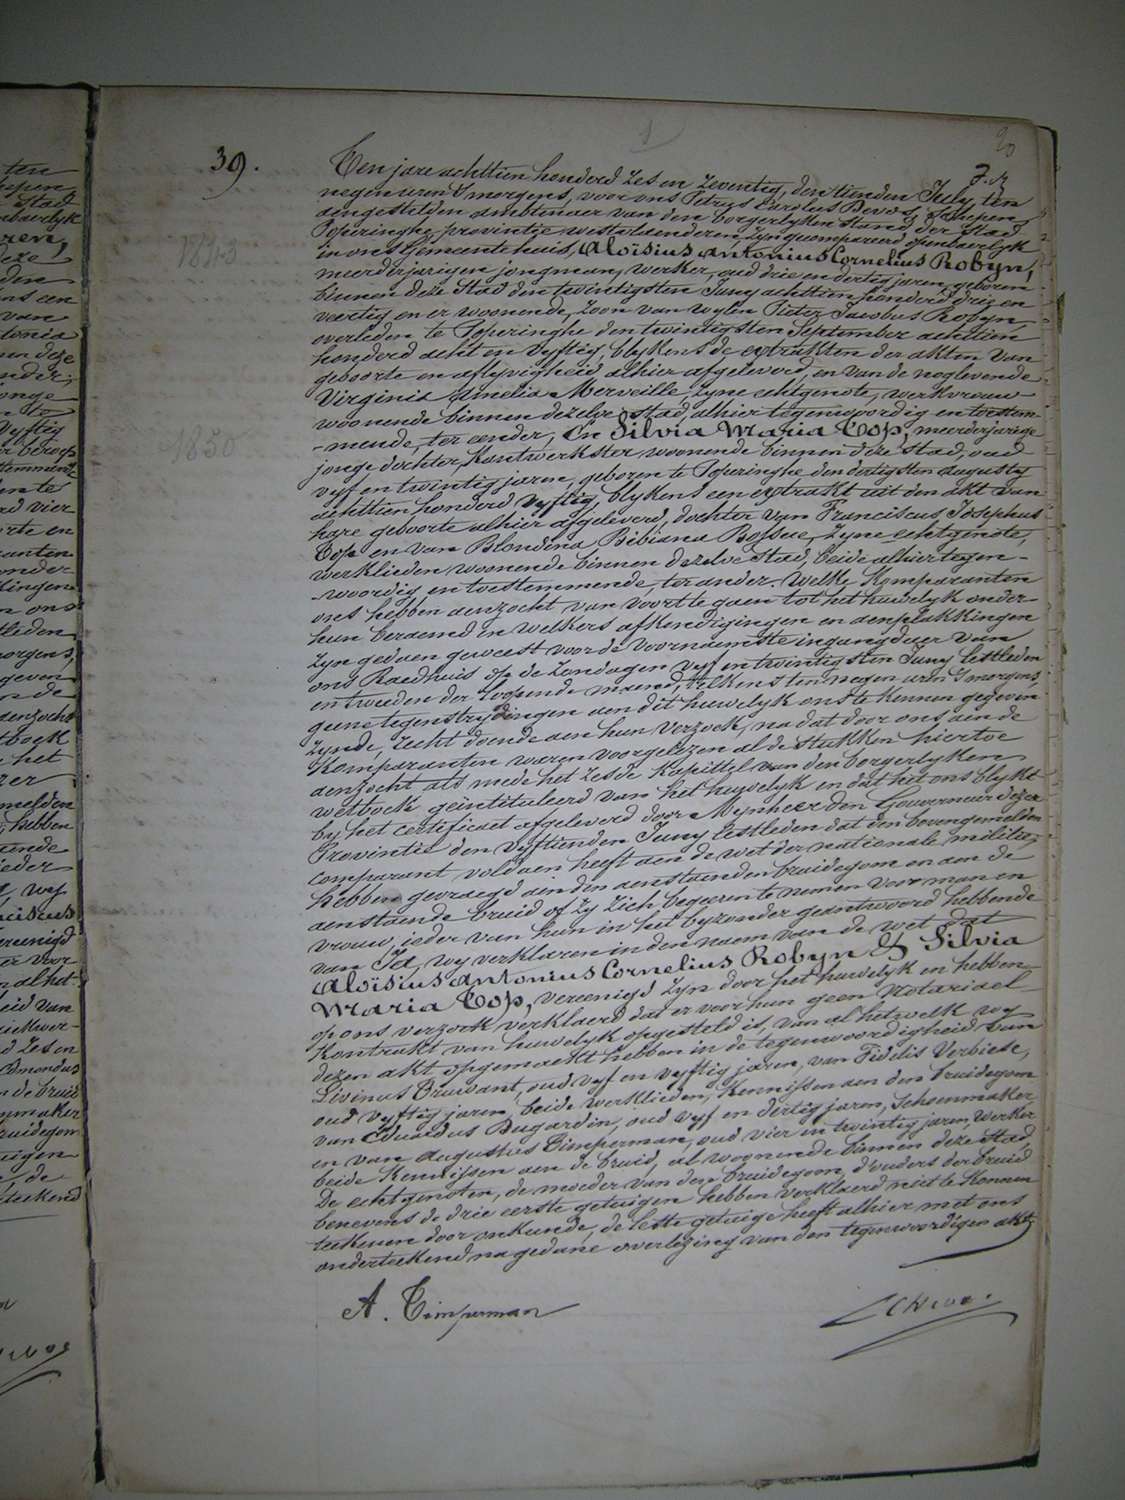 20
39.
Ten jare achttien honderd zes en zeventig, den tienden July, ten
negen uren 's morgens, voor ons Petrus Carolus Devos, Schepen
aengestelden ambtenaer van den borgerlyken stand, der stad
Poperinghe, provintie westvlaenderen, zyn gecompareerd openbaerlyk
1843
in ons Gemeentehuis, Aloïsius Antonius Cornelius Robyn,
meerderjarigen jongman, werker, oud drie en dertig jaren, geboren
binnen deze stad den twintigsten Juny achttien honderd drie en
veertig en er woonende, zoon van wylen Pieter Jacobus Robyn
overleden te Poperinghe den twintigsten September achttien
honderd acht en vyftig, blykens de extrakten der akten van
geboorte en aflyvigheid alhier afgeleverd, en van de noglevende
Virginia Amelia Merveille, zyne echtgenote, werkvrouw
woonende binnen dezelve stad, alhier tegenwoordig en toestem-
1850
-mende, ter eender, En Silvia Maria Top, meerderjarige
jonge dochter, kantwerkster woonende binnen deze stad, oud
vyf en twintig jaren, geboren te Poperinghe den dertigsten augusty
achttien honderd vyftig, blykens een extrakt uit den akt van
hare geboorte alhier afgeleverd, dochter van Franciscus Josephus
Top en van Blondina Bibiana Bossue, zyne echtgenote,
werklieden woonende binnen dezelve stad, beide alhier tegen-
-woordig en toestemmende, ter ander. Welke komparanten
ons hebben aenzocht van voort te gaen tot het huwelyk onder
hun beraemd en welkers afkondigingen en aenplakkingen
zyn gedaen geweest voor de voornaemste ingangdeur van
ons Raedhuis op de zondagen vyf en twintigsten Juny lestleden
en tweeden der loopende maend, telkens ten negen uren 's morgens
geene tegenstrydingen aen dit huwelyk ons te kennen gegeven
zynde, recht doende aen hun verzoek, na dat door ons aen de
komparanten waren voorgelezen al de stukken hiertoe
aenzocht als mede het zesde kapittel van den borgerlyken
wetboek geintituleerd van het huwelyk en dat het ons blykt
by het certificaet afgeleverd door Mynheer den Gouverneur dezer
Provintie den vyftienden Juny lestleden dat den bovengemelden
comparant, voldaen heeft aen de wet der nationale militie,
hebben gevraegd aen den aenstaenden bruidegom en aen de
aenstaende bruid of zy zich begeeren te nemen voor man en
vrouw, ieder van hun in het byzonder geantwoord hebbende
van Ja, wy verklaren in den naem van de wet dat
Aloïsius Antonius Cornelius Robyn & Silvia
Maria Top, vereenigd zyn door het huwelyk en hebben
op ons verzoek verklaerd dat er voor hun geen Notariael
kontrakt van huwelyk opgesteld is, van al hetwelk wy
dezen akt opgemaekt hebben in de tegenwoordigheid van
Livinus Bruwant, oud vyf en vyftig jaren, van Fidelis Verbiese,
oud vyftig jaren, beide werklieden, kennissen aen den bruidegom
van Eduardus Dugardin, oud vyf en dertig jaren, schoenmaker
en van Augustus Timperman, oud vier en twintig jaren, werker
beide kennissen aen de bruid, al woonende binnen deze stad,
De echtgenoten, de moeder van den bruidegom, d'ouders der bruid
benevens de drie eerste getuigen hebben verklaerd niet te konnen
teekenen door onkunde, de leste getuige heeft alhier met ons
onderteekend na gedane overlezing van den tegenwoordigen akt,
A. Timperman